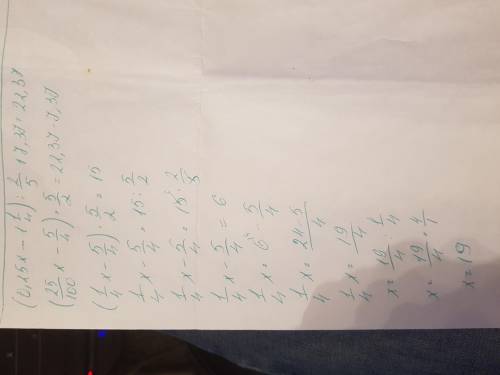 (0,25x - 1 1/4) : 2/5 + 7,37 = 22,37
(25/100 x - 5/4) · 5/2 = 22,37 - 7,37
(1/4 x - 5/4) · 5/2 = 15
1/4 x - 5/4 = 15 : 5/2
1/4 x - 5/4 = 15 · 2/5
1/4 x - 5/4 = 6
1/4 x = 6 - 5/4
1/4 x = (24-5)/4
1/4 x = 19/4
x = 19/4 : 1/4
x = 19/4 · 4/1
x = 19